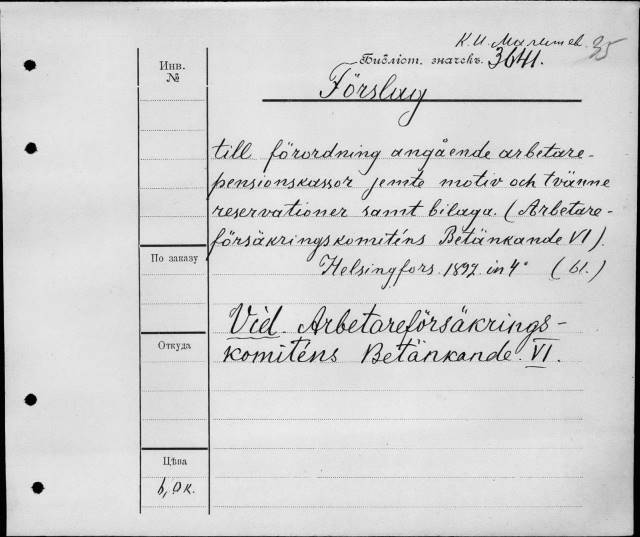 К. И. Малышев.
35
Инв.
№
Библіот. значекъ. 3641.
Förslag
till förordning angående arbetare-
pensionskassor jemte motiv och tvänne
reservationer samt bilaga. (Arbetare-
försäkringskomiténs Betänkande VI).
По заказу
Helsingfors. 1892. in 4° (bl.)
Vid. Arbetareförsäkrings-
Откуда
komiténs Betänkande. VI.
Цѣна